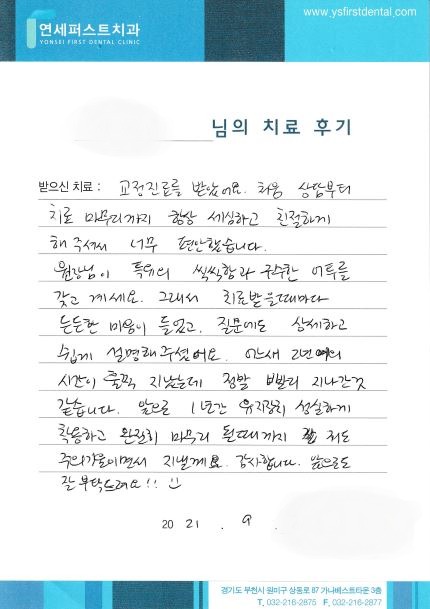 www.ysfirstdental.com
연세퍼스트치과
YONSEI FIRST DENTAL CLINIC
님의 치료 후기
받으신 치료 : 교정진료를 받았어요. 처음 상담부터
치료 마무리까지 항상 세심하고 친절하게
해 주셔서 너무 편안했습니다.
원장님이 특유의 씩씩함과 구수한 어투를
갖고 계세요. 그래서 치료받을때마다
든든한 마음이 들었고, 질문에도 상세하고
쉽게 설명해주셨어요. 어느새 2년여의
시간이 훌쩍 지났는데 정말 빨리 지나간것
같습니다. 앞으로 1년간 유지장치 성실하게
착용하고 완전히 마무리 될때까지 저도
주의기울이면서 지낼게요. 감사합니다. 앞으로도
잘 부탁드려요!! :)
2021 . 9 .
경기도 부천시 원미구 상동로 87 가나베스트타운 3층
T. 032-216-2875 F. 032-216-2877